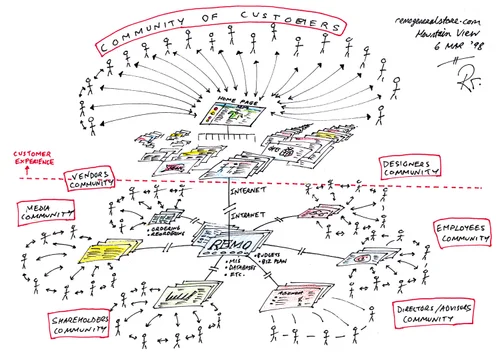 COMMUNITY OF CUSTOMERS
remogeneralstore.com
Mountain View
6 MAR '98
HOME PAGE
CUSTOMER
EXPERIENCE
VENDORS
COMMUNITY
DESIGNERS
COMMUNITY
INTERNET
INTRANET
MEDIA
COMMUNITY
• ORDERING
• REORDERING
REMO
EMPLOYEES
COMMUNITY
• MIS
• DATABASES
• ETC.
• BUDGETS
• BIZ PLAN
SHAREHOLDERS
COMMUNITY
DIRECTORS/ADVISORS
COMMUNITY